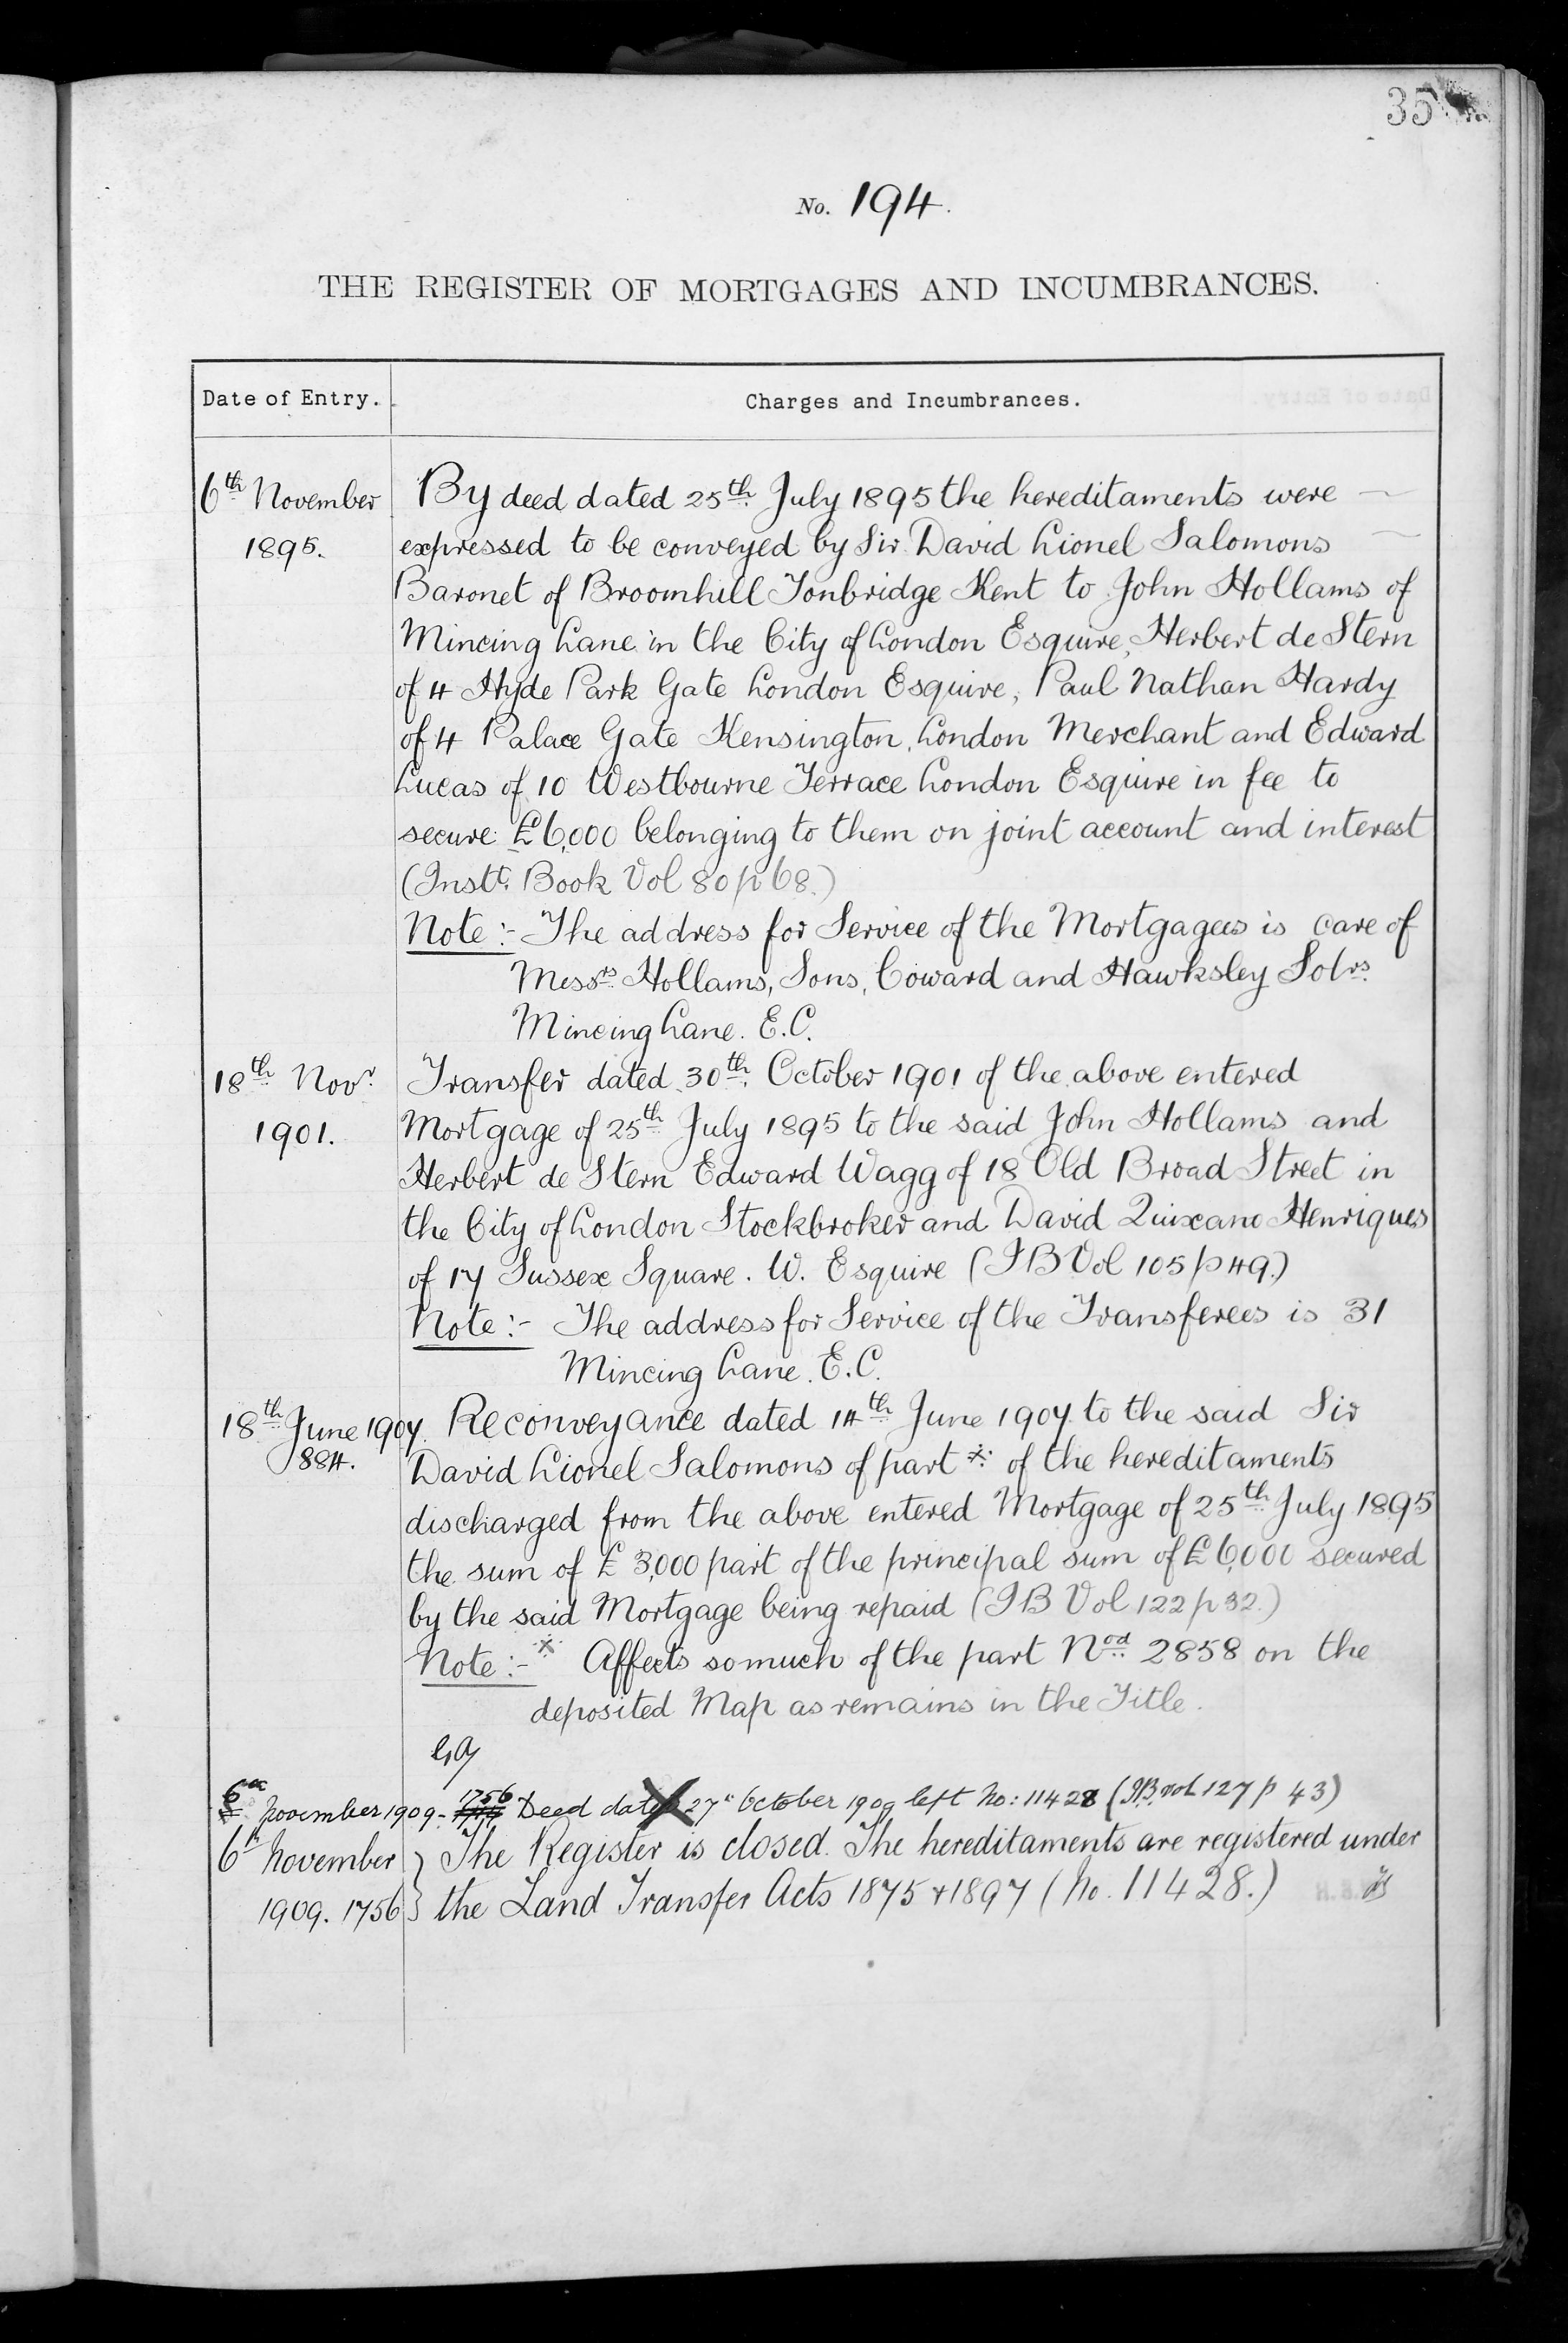 35
No. 194.
THE REGISTER OF MORTGAGES AND INCUMBRANCES.
Date of Entry. Charges and Incumbrances.
6th November By deed dated 25th July 1895 the hereditaments were
1895. expressed to be conveyed by Sir David Lionel Salomons
Baronet of Broomhill Tonbridge Kent to John Hollams of
Mincing Lane in the City of London Esquire, Herbert de Stern
of 4 Hyde Park Gate London Esquire, Paul Nathan Hardy
of 4 Palace Gate Kensington, London Merchant and Edward
Lucas of 10 Westbourne Terrace London Esquire in fee to
secure £6,000 belonging to them on joint account and interest
(Instt. Book Vol 80 p 68.)
Note:- The address for Service of the Mortgagees is care of
Messrs. Hollams, Sons, Coward and Hawksley Solrs.
Mincing Lane. E.C.
18th Novr. Transfer dated 30th October 1901 of the above entered
1901. Mortgage of 25th July 1895 to the said John Hollams and
Herbert de Stern Edward Wagg of 18 Old Broad Street in
the City of London Stockbroker and David Quixano Henriques
of 17 Sussex Square. W. Esquire (IB Vol 105 p 49.)
Note:- The address for Service of the Transferees is 31
Mincing Lane. E.C.
18th June 1907. Reconveyance dated 14th June 1907 to the said Sir
884. David Lionel Salomons of part * of the hereditaments
discharged from the above entered Mortgage of 25th July 1895
the sum of £3,000 part of the principal sum of £6,000 secured
by the said Mortgage being repaid (IB Vol 122 p 32.)
Note:- * Affects so much of the part Nod 2858 on the
deposited Map as remains in the Title.
6th November 1909. 1756 Deed dated 27th October 1909 left No: 11428 (IB. vol 127 p 43)
6th November } The Register is closed. The hereditaments are registered under
1909. 1756 } the Land Transfer Acts 1875 & 1897 (No. 11428.)